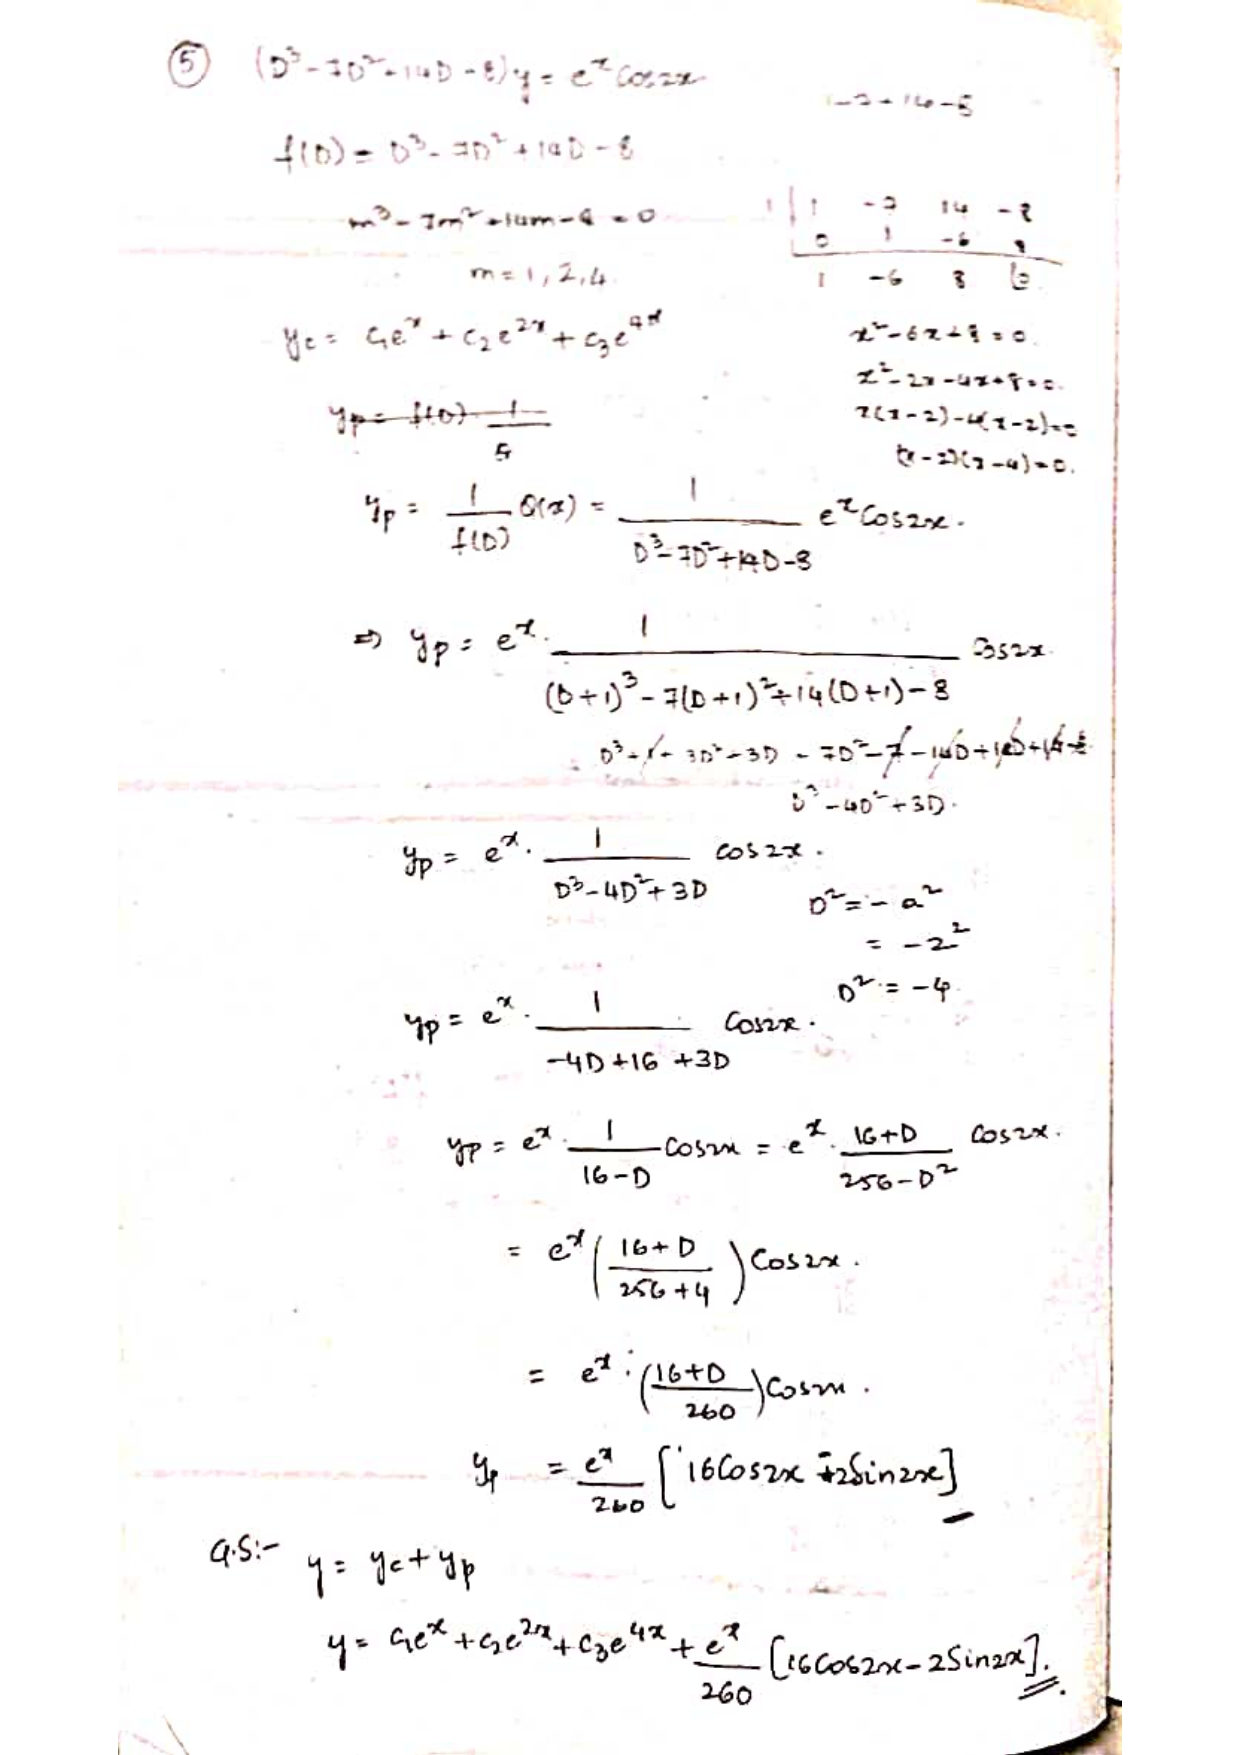 ⑤ (D³-7D²+14D-8)y = eˣ Cos2x
1-7+14-8
f(D) = D³-7D²+14D-8
m³-7m²+14m-8=0
1 | 1 -7 14 -8
0 1 -6 8
1 -6 8 0
m=1,2,4
yc = c₁eˣ + c₂e²ˣ + c₃e⁴ˣ
x²-6x+8=0.
x²-2x-4x+8=0.
x(x-2)-4(x-2)=0
(x-2)(x-4)=0.
yp = f(D) 1/5
yp = 1/f(D) Q(x) = 1/(D³-7D²+14D-8) eˣ Cos2x.
⇒ yp = eˣ. 1/((D+1)³-7(D+1)²+14(D+1)-8) Cos2x.
D³+1+3D²+3D-7D²-7-14D+14D+14-8
D³-4D²+3D.
yp = eˣ. 1/(D³-4D²+3D) cos2x.
D²=-a²
= -2²
D² = -4
yp = eˣ. 1/(-4D+16+3D) Cos2x.
yp = eˣ. 1/(16-D) Cos2x = eˣ. (16+D)/(256-D²) Cos2x.
= eˣ ((16+D)/(256+4)) Cos2x.
= eˣ. ((16+D)/260) Cos2x.
yp = eˣ/260 [16Cos2x -2Sin2x]
G.S:- y = yc+yp
y = c₁eˣ + c₂e²ˣ + c₃e⁴ˣ + eˣ/260 [16Cos2x-2Sin2x].